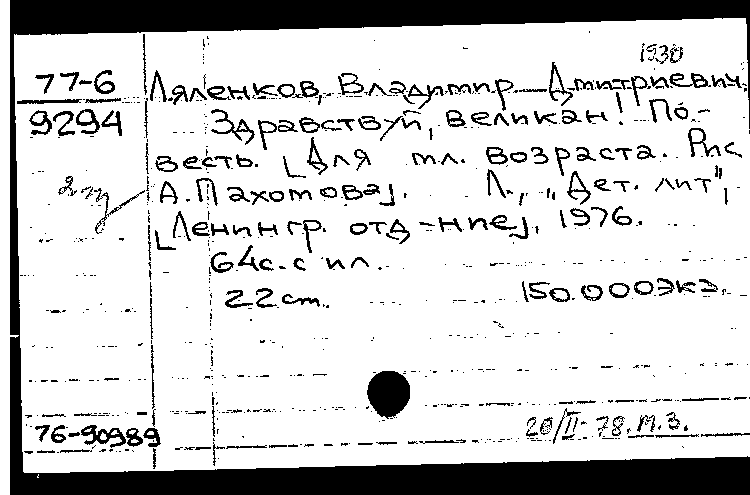 1930
77-6 Ляленков, Владимир Дмитриевич.
9294 Здравствуй, великан! По-
весть. [Для мл. возраста. Рис.
2 эк А. Пахомова]. Л., "Дет. лит",
[Ленингр. отд-ние], 1976.
64с. с ил.
22 см. 150.000экз.
76-90989 20/II-78. М.З.